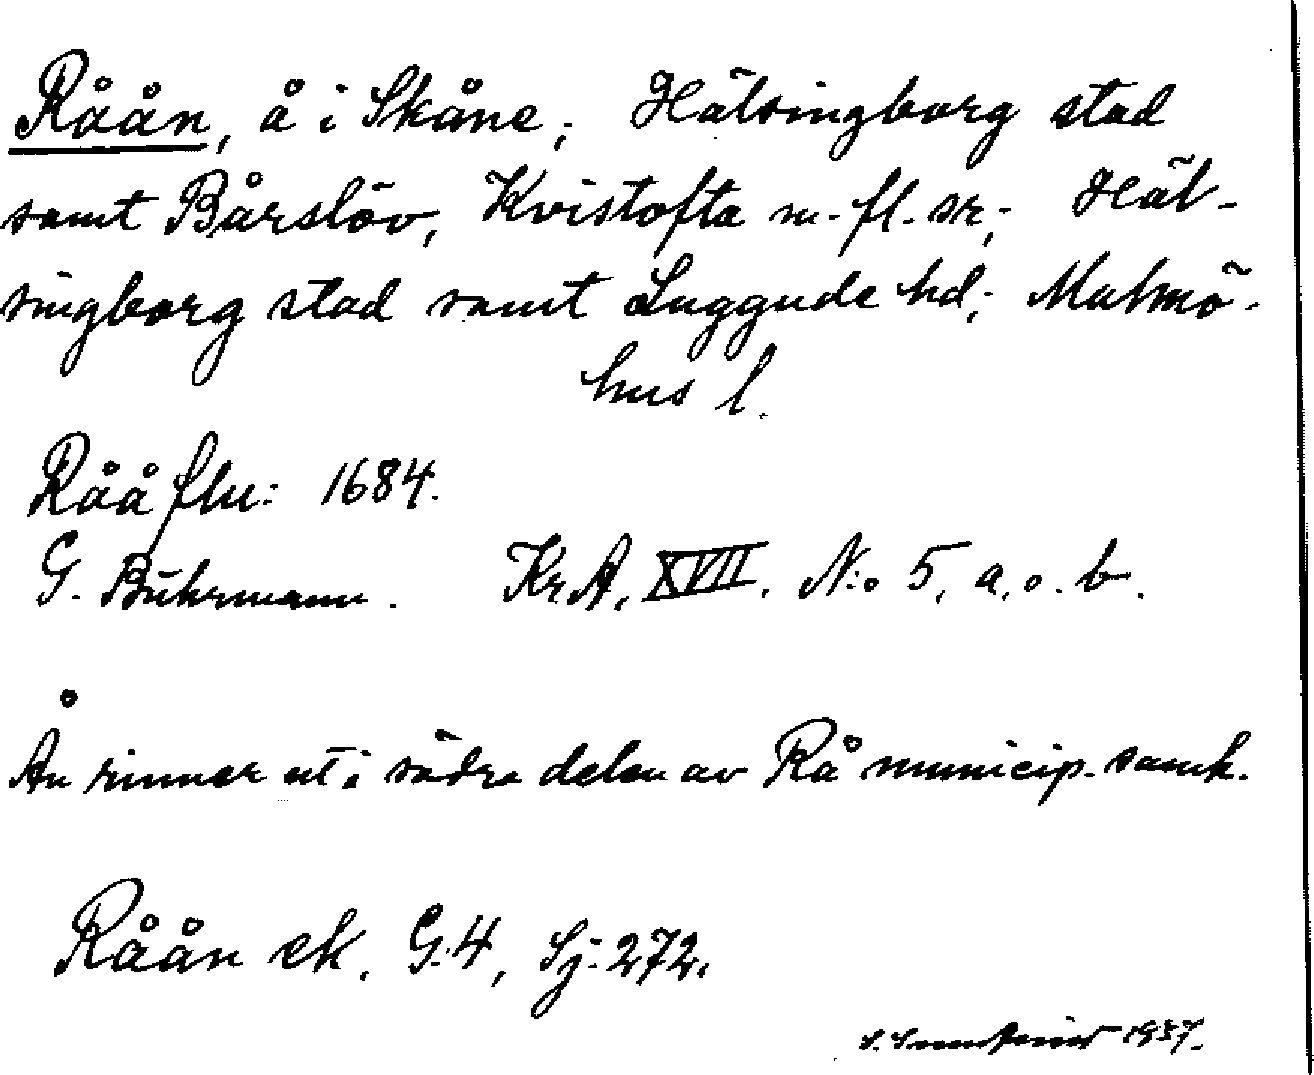 Råån, å i Skåne; Hälsingborg stad
samt Bårslöv, Kvistofta m. fl. sr; Häl-
singborg stad samt Luggude hd; Malmö-
hus l.
Råå flu: 1684.
G. Buhrmann. Kr. A. XVII. N:o 5, a. o. b.
Ån rinner ut i södra delen av Rå municip. samh.
Råån ek. G. 4, Sj: 272.
S. 1937.